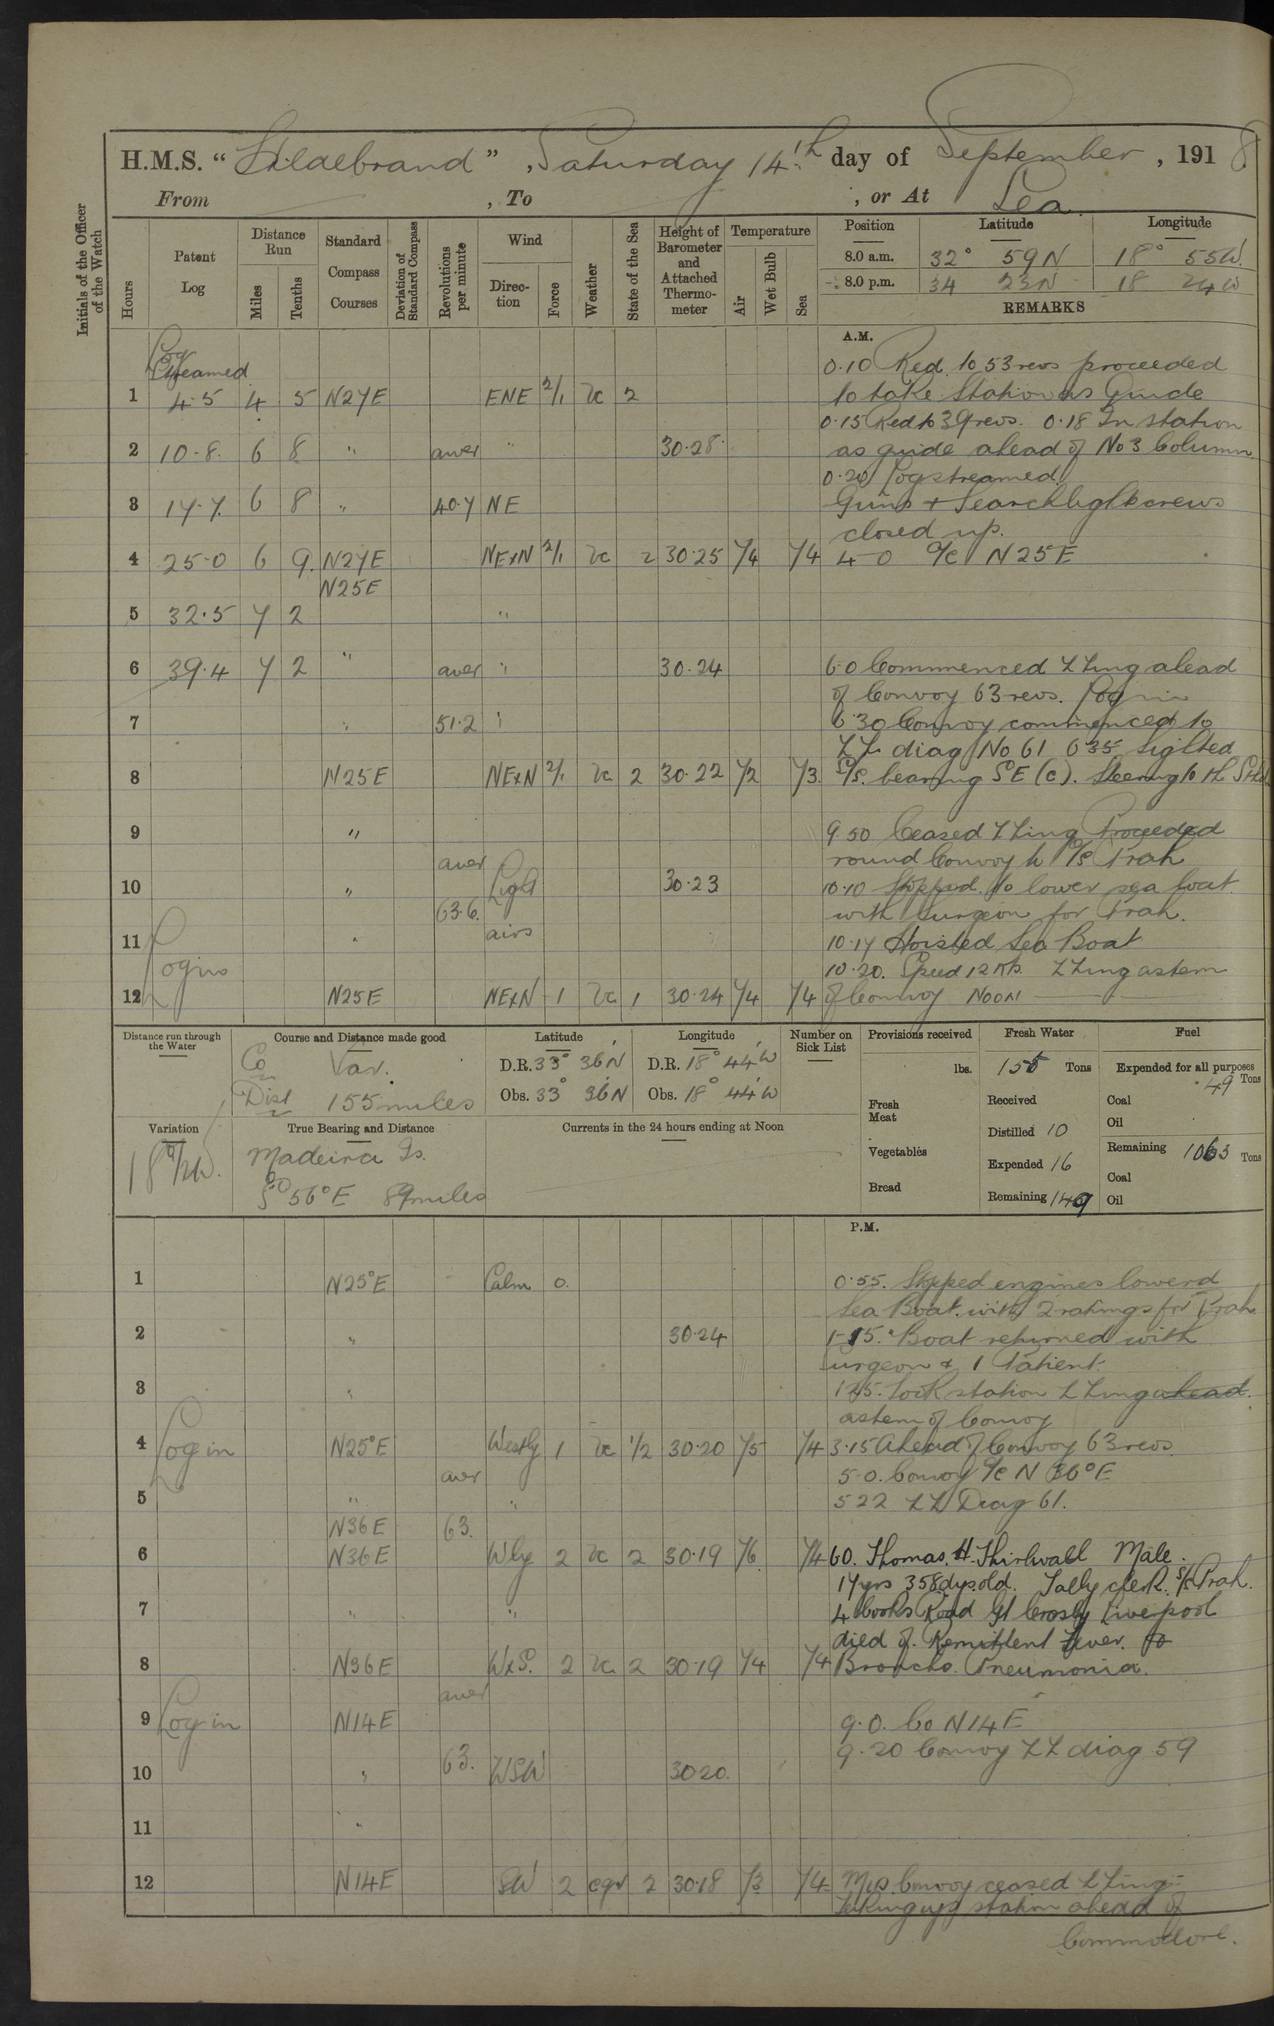 H.M.S. "Hildebrand", Saturday 14th day of September, 1918
From , To , or At Sea
Initials of the Officer of the Watch
Hours
Patent Log
Distance Run
Miles
Tenths
Standard Compass Courses
Deviation of Standard Compass
Revolutions per minute
Wind
Direction
Force
Weather
State of the Sea
Height of Barometer and Attached Thermometer
Temperature
Air
Wet Bulb
Sea
Position Latitude Longitude
8.0 a.m. 32° 59N 18° 55W.
8.0 p.m. 34 23N 18 24W
REMARKS
A.M.
Log Streamed
0.10 Red. to 53 revs proceeded
1 4.5 4 5 N27E ENE 2/1 bc 2 to take station as Guide
0.15 Red to 39 revs. 0.18 In station
2 10.8. 6 8 " aver " 30.28 as guide ahead of No 3 Column
0.20 Log streamed
3 17.7. 6 8 " 40.7 NE Guns + Searchlight crews
closed up.
4 25.0 6 9. N27E NExN 2/1 bc 2 30.25 74 74 4-0 a/c N25E
N25E
5 32.5 7 2 "
6 39.4 7 2 " aver " 30.24 6.0 Commenced ZZing ahead
of Convoy 63 revs. Log in
7 " 51.2 " 6.30 Convoy commenced to
ZZ diag No 61 6 35 Sighted
8 N25E NExN 2/1 bc 2 30.22 72 73. S/S. bearing SE (c). Steering to th Stbd
9 " 9.50 Ceased ZZing Proceeded
aver round Convoy to S/S Prah
10 " Light 30.23 10.10 Stopped. to lower sea boat
63.6. with Surgeon for Prah.
11 " airs 10.17 Hoisted Sea Boat
Log in 10.20. Speed 12 Kts. ZZing astern
12 N25E NExN 1 bc 1 30.24 74 74 of Convoy NOON
Distance run through the Water
Course and Distance made good
Co Var.
Dist 155 miles
Latitude
D.R. 33° 36'N
Obs. 33° 36'N
Longitude
D.R. 18° 44'W
Obs. 18° 44'W
Number on Sick List
Provisions received
lbs.
Fresh Meat
Vegetables
Bread
Fresh Water
155 Tons
Received
Distilled 10
Expended 16
Remaining 149
Fuel
Expended for all purposes
49 Tons
Coal
Oil
Remaining 1063 Tons
Coal
Oil
Variation
True Bearing and Distance
Madeira Is.
S 56°E 89 miles
Currents in the 24 hours ending at Noon
P.M.
1 N25°E Calm 0. 0.55. Stopped engines lowerd
Sea Boat. with 2 ratings for Prah
2 " 30.24 Boat returned with
Surgeon & 1 Patient.
3 " 1.45. Took station ZZing ahead.
astern of Convoy
4 Log in N25°E Westly 1 bc 1/2 30.20 75 74 3.15 Ahead of Convoy 63 revs
aver 5.0. Convoy a/c N 36°E
5 " " 5 22 ZZ Diag 61.
N36E 63.
6 N36E Wly 2 bc 2 30.19 76 74 6.0. Thomas. H. Thirlwall Male.
17 yrs 358 dys old. Tally clerk. S/S Prah.
7 " " 4 Cooks Road Gt Crosby Liverpool
died of. Remittent Fever. to
8 N36E WxS. 2 bc 2 30.19 74 74 Broncho. Pneumonia.
aver
9 Log in N14E 9.0. Co N14E
9.20 Convoy ZZ diag 59
10 " 63. WSW 30 20.
11 "
12 N14E SW 2 cqr 2 30.18 73 74 Mid. Convoy ceased ZZing
Taking up station ahead of
Commodore.